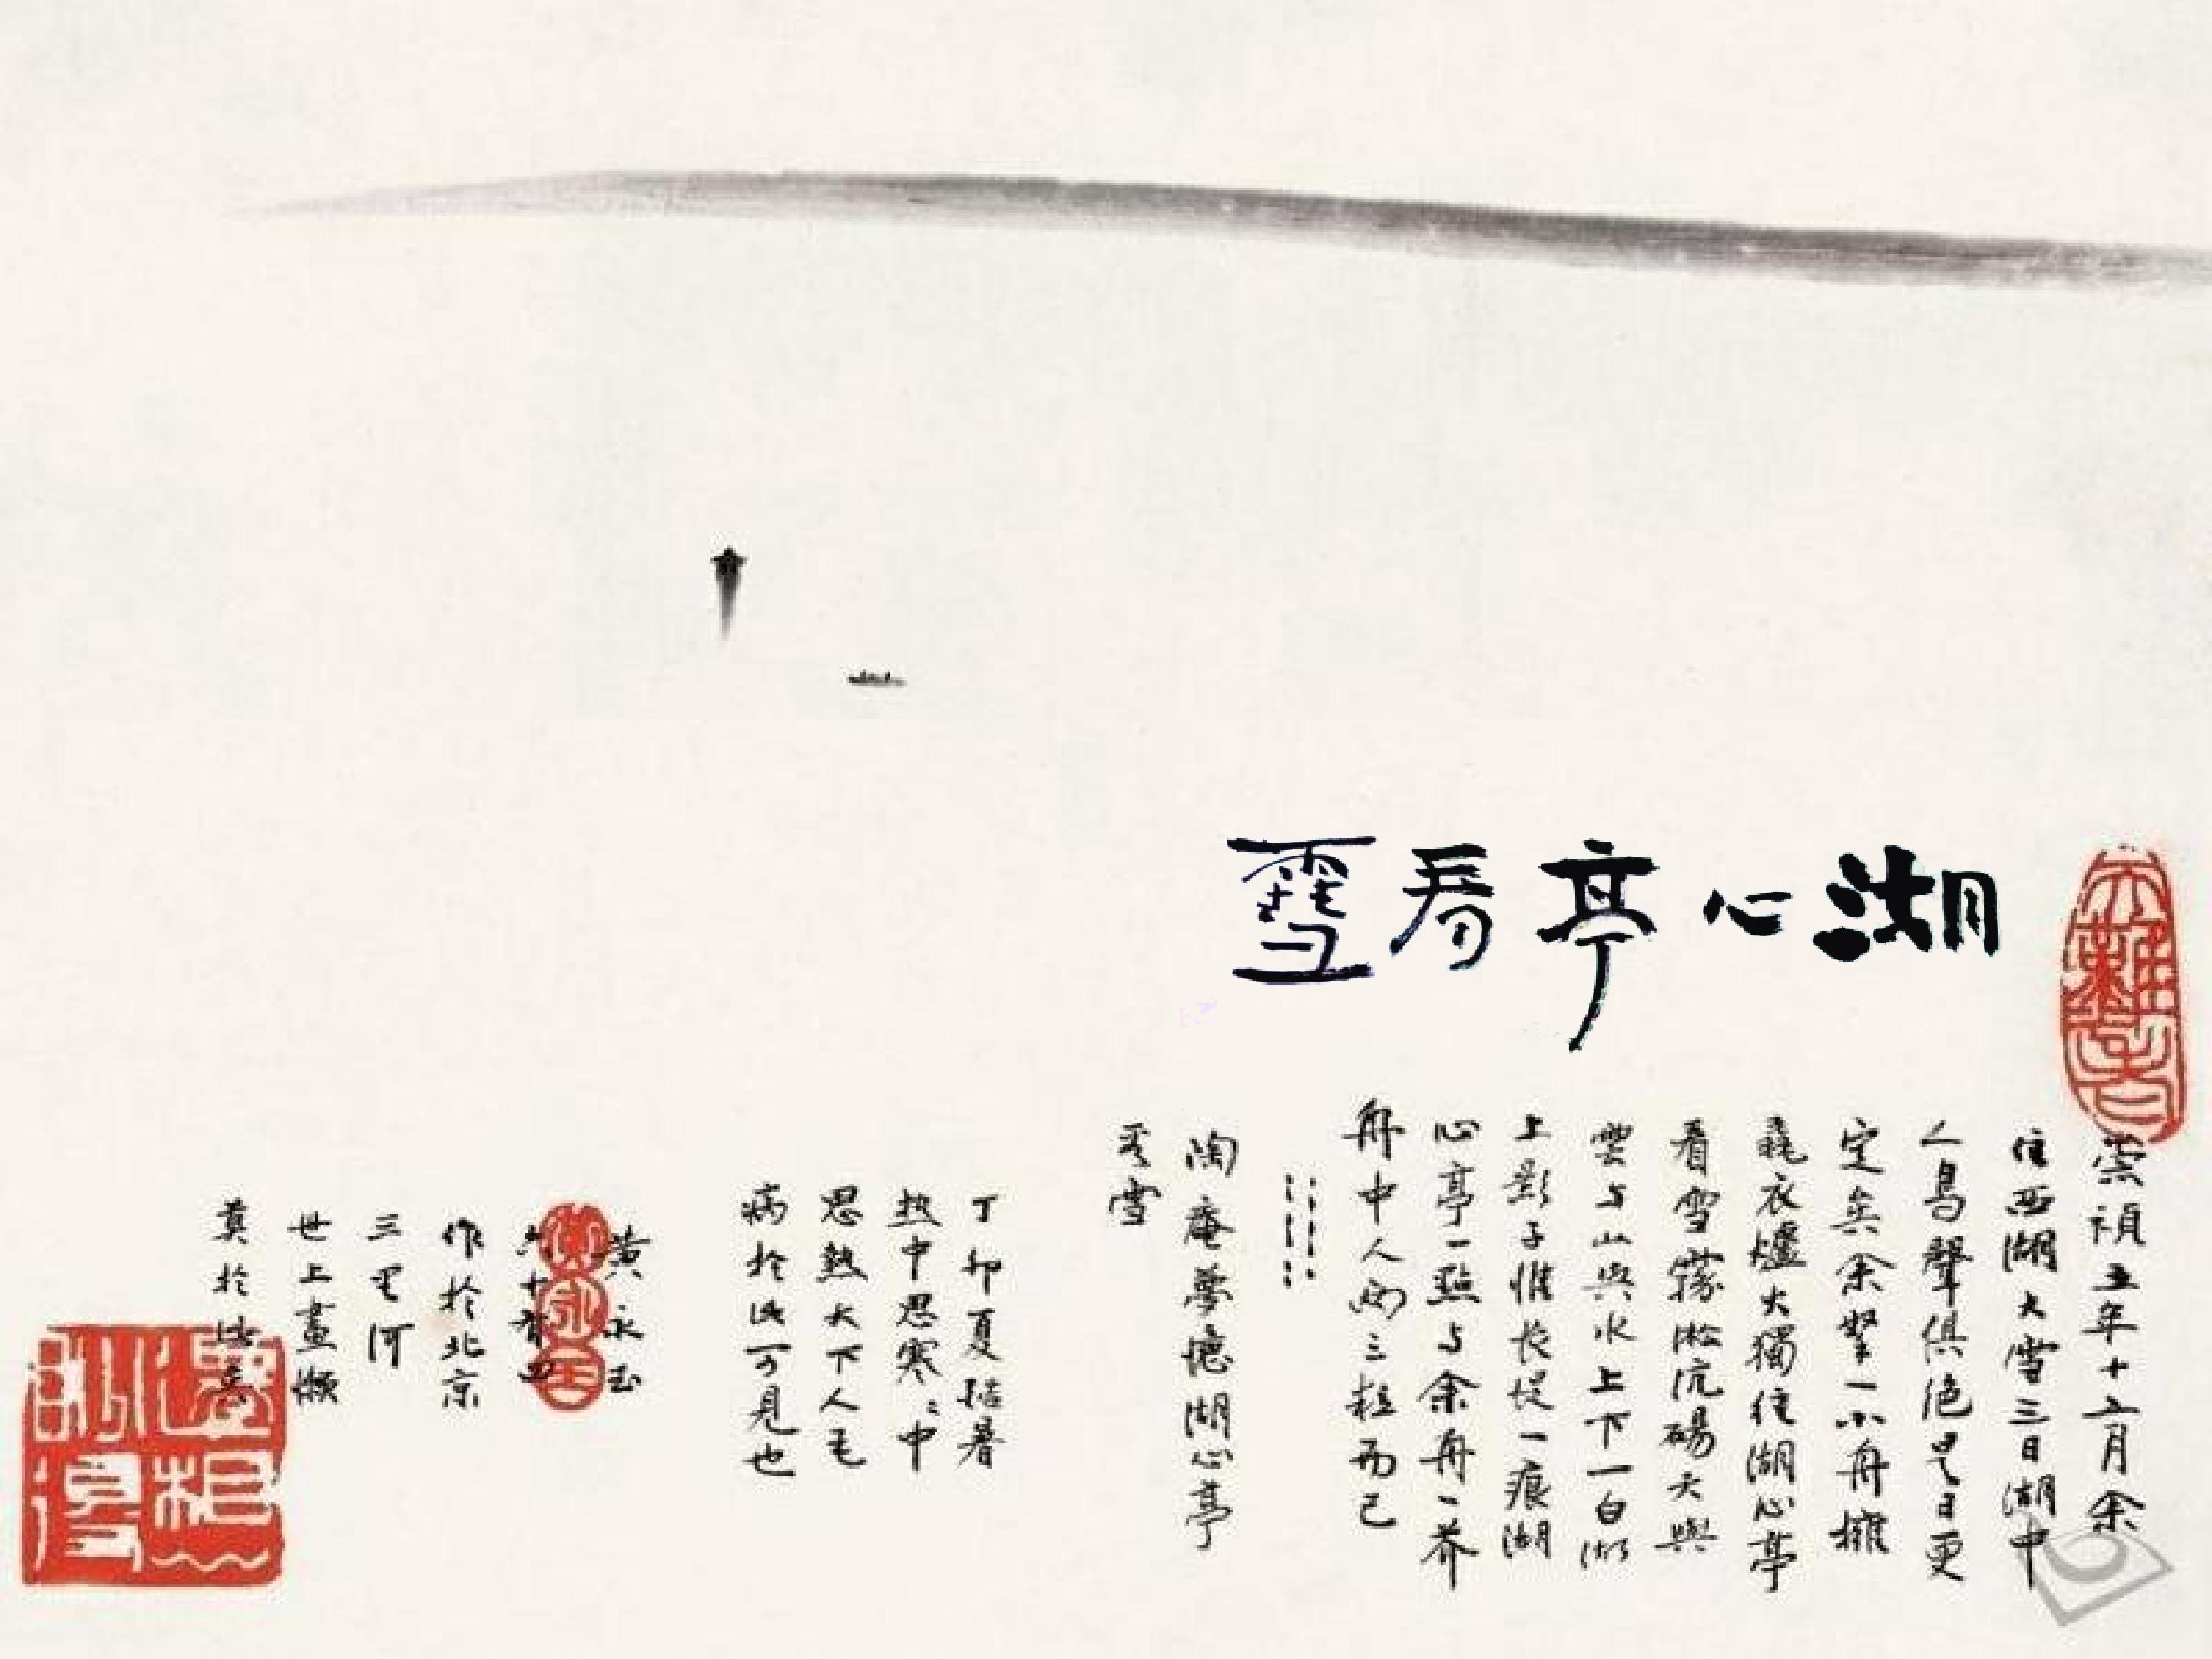 湖心亭看雪
崇禎五年十二月余
住西湖大雪三日湖中
人鳥聲俱絕是日更
定矣余拏一小舟擁
毳衣爐火獨往湖心亭
看雪霧淞沆碭天與
雲与山與水上下一白湖
上影子惟長堤一痕湖
心亭一點与余舟一芥
舟中人兩三粒而已
……
陶庵夢憶湖心亭
看雪
丁卯夏酷暑
热中思寒寒中
思熱天下人毛
病於此可見也
黃永玉
六十有四
作於北京
三里河
世上畫瀨
莫於